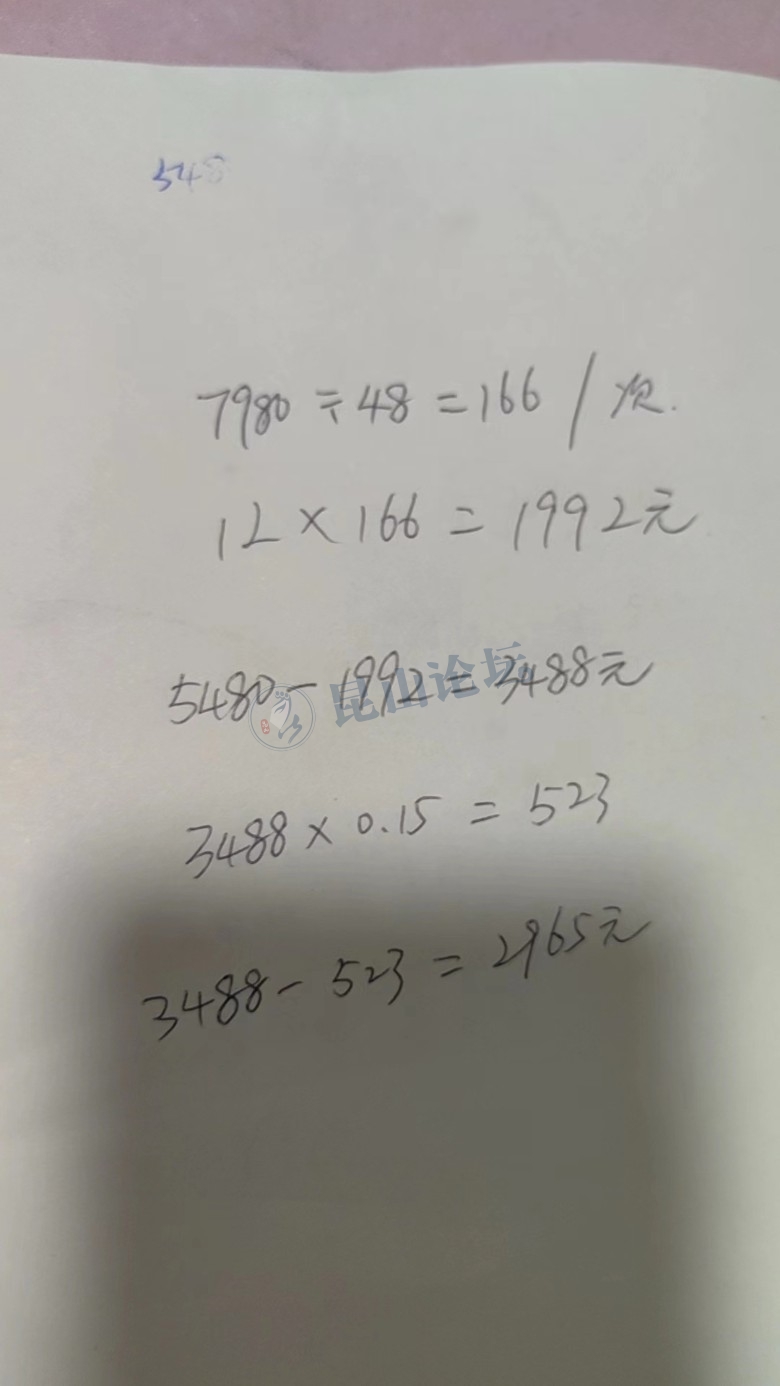 548
7980÷48=166/次.
12×166=1992元
5480-1992=3488元
昆山论坛
3488×0.15=523
3488-523=2965元